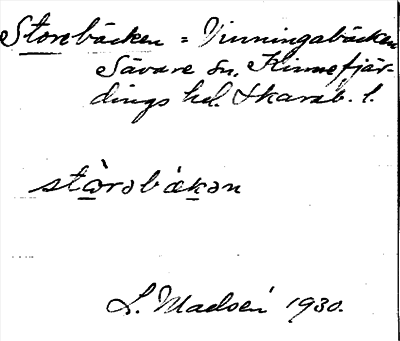 Storebäcken = Vinningabäcken
Sävare sn. Kinnefjär-
dings hd. Skarab. l.
stò̱rəbäḵən
L. Madsén 1930.